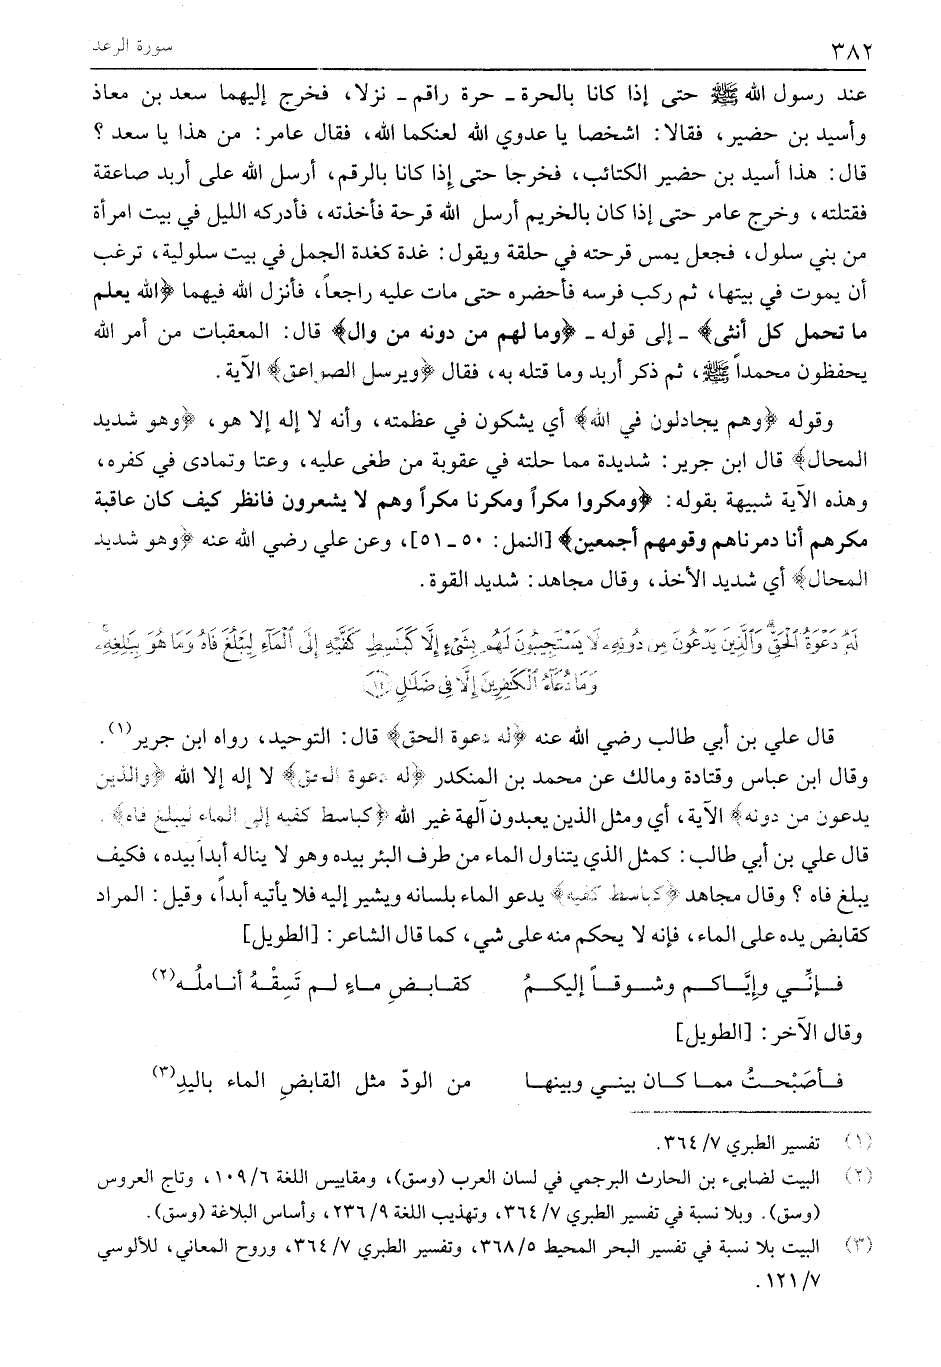 ٣٨٢ سورة الرعد
عند رسول الله ﷺ حتى إذا كانا بالحرة ـ حرة راقم ـ نزلا، فخرج إليهما سعد بن معاذ
وأسيد بن حضير، فقالا: اشخصا يا عدوي الله لعنكما الله، فقال عامر: من هذا يا سعد ؟
قال: هذا أسيد بن حضير الكتائب، فخرجا حتى إذا كانا بالرقم، أرسل الله على أربد صاعقة
فقتلته، وخرج عامر حتى إذا كان بالخريم أرسل الله قرحة فأخذته، فأدركه الليل في بيت امرأة
من بني سلول، فجعل يمس قرحته في حلقة ويقول: غدة كغدة الجمل في بيت سلولية، ترغب
أن يموت في بيتها، ثم ركب فرسه فأحضره حتى مات عليه راجعاً، فأنزل الله فيهما ﴿الله يعلم
ما تحمل كل أنثى﴾ ـ إلى قوله ـ ﴿وما لهم من دونه من وال﴾ قال: المعقبات من أمر الله
يحفظون محمداً ﷺ، ثم ذكر أربد وما قتله به، فقال ﴿ويرسل الصواعق﴾ الآية.
وقوله ﴿وهم يجادلون في الله﴾ أي يشكون في عظمته، وأنه لا إله إلا هو، ﴿وهو شديد
المحال﴾ قال ابن جرير: شديدة مما حلته في عقوبة من طغى عليه، وعتا وتمادى في كفره،
وهذه الآية شبيهة بقوله: ﴿ومكروا مكراً ومكرنا مكراً وهم لا يشعرون فانظر كيف كان عاقبة
مكرهم أنا دمرناهم وقومهم أجمعين﴾ [النمل: ٥٠ ـ ٥١]، وعن علي رضي الله عنه ﴿وهو شديد
المحال﴾ أي شديد الأخذ، وقال مجاهد: شديد القوة.
لَهُ دَعْوَةُ الْحَقِّ وَالَّذِينَ يَدْعُونَ مِن دُونِهِ لَا يَسْتَجِيبُونَ لَهُم بِشَيْءٍ إِلَّا كَبَاسِطِ كَفَّيْهِ إِلَى الْمَاءِ لِيَبْلُغَ فَاهُ وَمَا هُوَ بِبَالِغِهِ
وَمَا دُعَاءُ الْكَافِرِينَ إِلَّا فِي ضَلَالٍ (١٤)
قال علي بن أبي طالب رضي الله عنه ﴿له دعوة الحق﴾ قال: التوحيد، رواه ابن جرير(١).
وقال ابن عباس وقتادة ومالك عن محمد بن المنكدر ﴿له دعوة الحق﴾ لا إله إلا الله ﴿والذين
يدعون من دونه﴾ الآية، أي ومثل الذين يعبدون آلهة غير الله ﴿كباسط كفيه إلى الماء ليبلغ فاه﴾.
قال علي بن أبي طالب: كمثل الذي يتناول الماء من طرف البئر بيده وهو لا يناله أبداً بيده، فكيف
يبلغ فاه ؟ وقال مجاهد ﴿كباسط كفيه﴾ يدعو الماء بلسانه ويشير إليه فلا يأتيه أبداً، وقيل: المراد
كقابض يده على الماء، فإنه لا يحكم منه على شي، كما قال الشاعر: [الطويل]
فـإنِّـي وإيَّـاكـم وشـوقـاً إليكـمُ كقـابـضِ مـاءٍ لـم تَسِقْـهُ أنـاملُـه(٢)
وقال الآخر: [الطويل]
فـأصَبْحـتُ ممـا كـان بينـي وبينهـا من الودّ مثل القابضِ الماء باليدِ(٣)
(١) تفسير الطبري ٧/ ٣٦٤.
(٢) البيت لضابىء بن الحارث البرجمي في لسان العرب (وسق)، ومقاييس اللغة ٦/ ١٠٩، وتاج العروس
(وسق). وبلا نسبة في تفسير الطبري ٧/ ٣٦٤، وتهذيب اللغة ٩/ ٢٣٦، وأساس البلاغة (وسق).
(٣) البيت بلا نسبة في تفسير البحر المحيط ٥/ ٣٦٨، وتفسير الطبري ٧/ ٣٦٤، وروح المعاني، للألوسي
٧/ ١٢١.